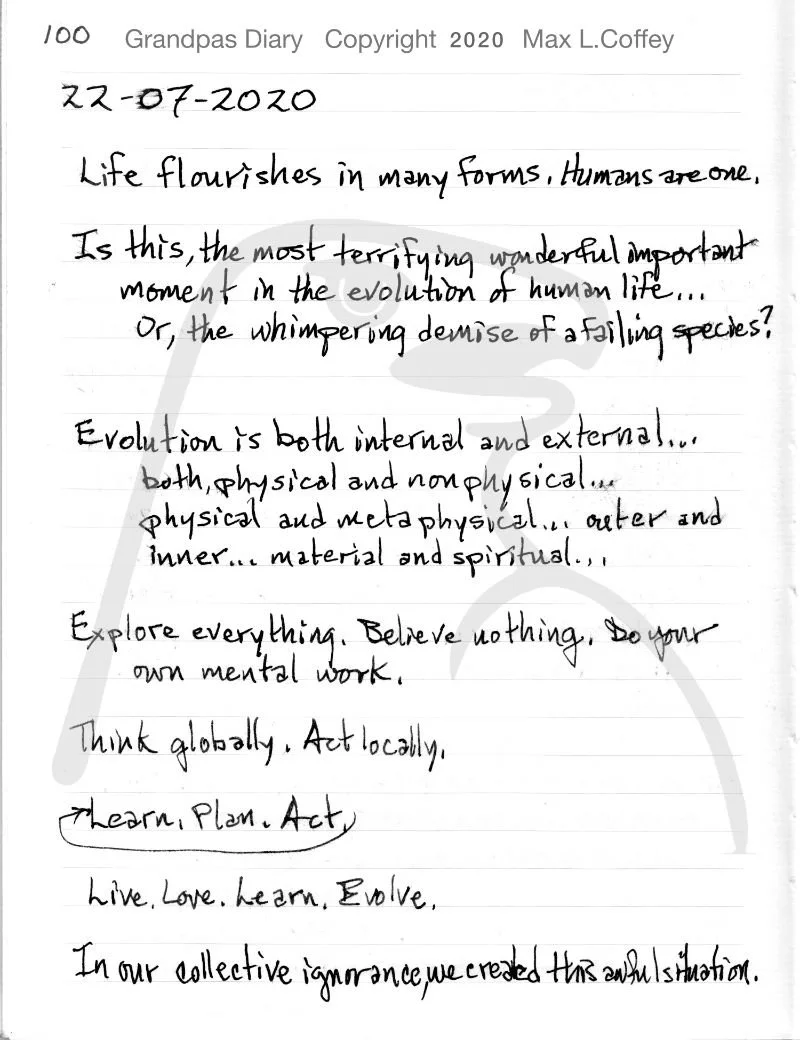 100 Grandpas Diary Copyright 2020 Max L.Coffey
22-07-2020
Life flourishes in many forms. Humans are one.
Is this, the most terrifying wonderful important
moment in the evolution of human life...
Or, the whimpering demise of a failing species?
Evolution is both internal and external...
both, physical and nonphysical...
physical and metaphysical... outer and
inner... material and spiritual...
Explore everything. Believe nothing. Do your
own mental work.
Think globally. Act locally.
Learn. Plan. Act.
Live. Love. Learn. Evolve.
In our collective ignorance, we created this awful situation.